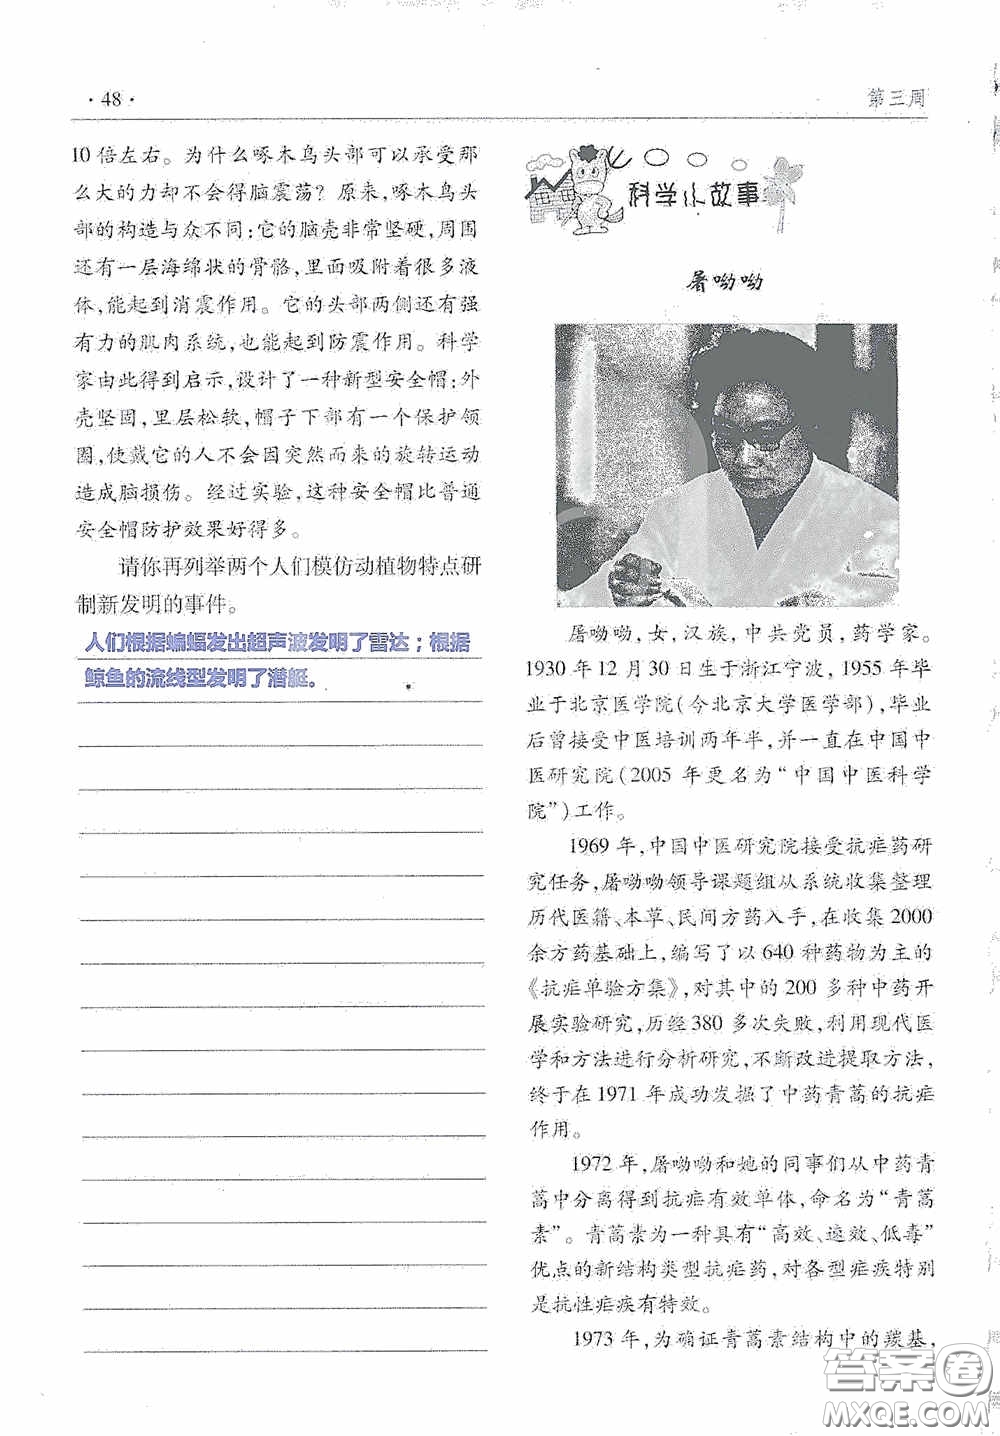 ·48·
第三周
10倍左右。为什么啄木鸟头部可以承受那
么大的力却不会得脑震荡？原来，啄木鸟头
部的构造与众不同：它的脑壳非常坚硬，周围
还有一层海绵状的骨骼，里面吸附着很多液
体，能起到消震作用。它的头部两侧还有强
有力的肌肉系统，也能起到防震作用。科学
家由此得到启示，设计了一种新型安全帽：外
壳坚固，里层松软，帽子下部有一个保护领
圈，使戴它的人不会因突然而来的旋转运动
造成脑损伤。经过实验，这种安全帽比普通
安全帽防护效果好得多。
请你再列举两个人们模仿动植物特点研
制新发明的事件。
人们根据蝙蝠发出超声波发明了雷达；根据
鲸鱼的流线型发明了潜艇。
科学小故事
屠呦呦
屠呦呦，女，汉族，中共党员，药学家。
1930年12月30日生于浙江宁波，1955年毕
业于北京医学院（今北京大学医学部），毕业
后曾接受中医培训两年半，并一直在中国中
医研究院（2005年更名为“中国中医科学
院”）工作。
1969年，中国中医研究院接受抗疟药研
究任务，屠呦呦领导课题组从系统收集整理
历代医籍、本草、民间方药入手，在收集2000
余方药基础上，编写了以640种药物为主的
《抗疟单验方集》，对其中的200多种中药开
展实验研究，历经380多次失败，利用现代医
学和方法进行分析研究，不断改进提取方法，
终于在1971年成功发掘了中药青蒿的抗疟
作用。
1972年，屠呦呦和她的同事们从中药青
蒿中分离得到抗疟有效单体，命名为“青蒿
素”。青蒿素为一种具有“高效、速效、低毒”
优点的新结构类型抗疟药，对各型疟疾特别
是抗性疟疾有特效。
1973年，为确证青蒿素结构中的羰基，
答案圈
MXQE.COM